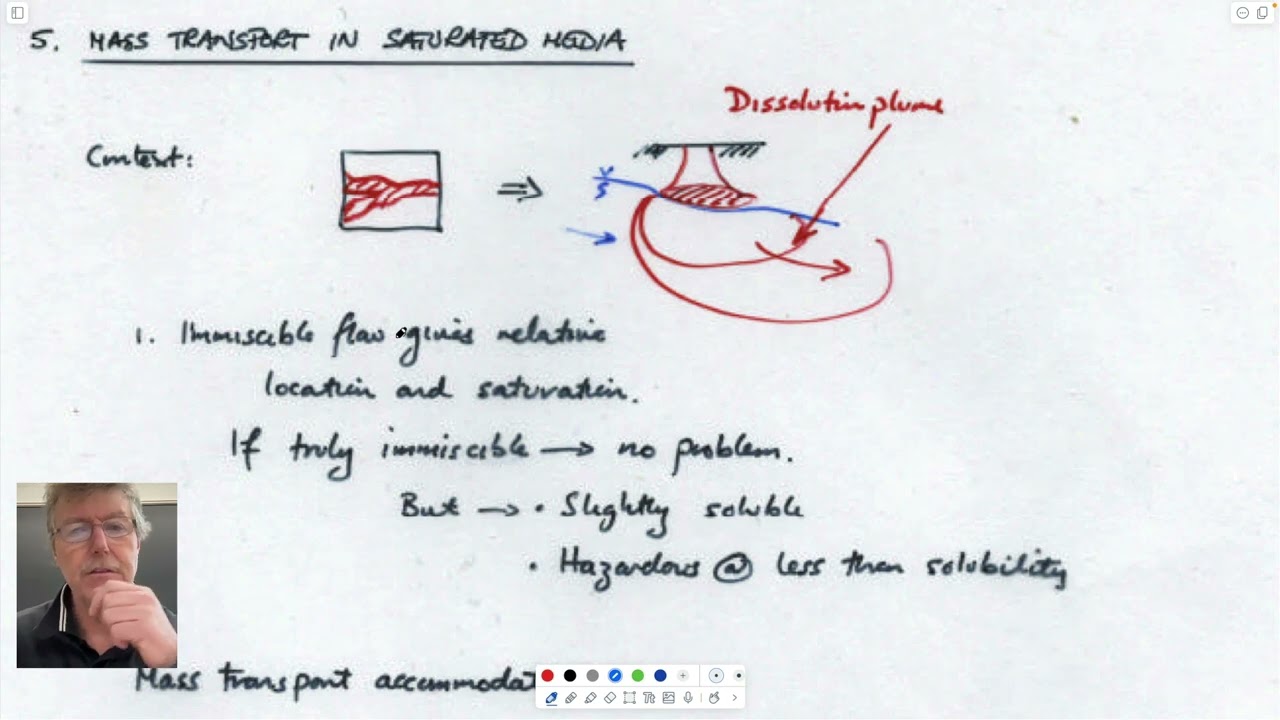 5. MASS TRANSPORT IN SATURATED MEDIA
Dissolution plume
Context:
1. Immiscible flow gives relative
location and saturation.
If truly immiscible → no problem.
But → • Slightly soluble
• Hazardous @ less than solubility
Mass transport accommodat